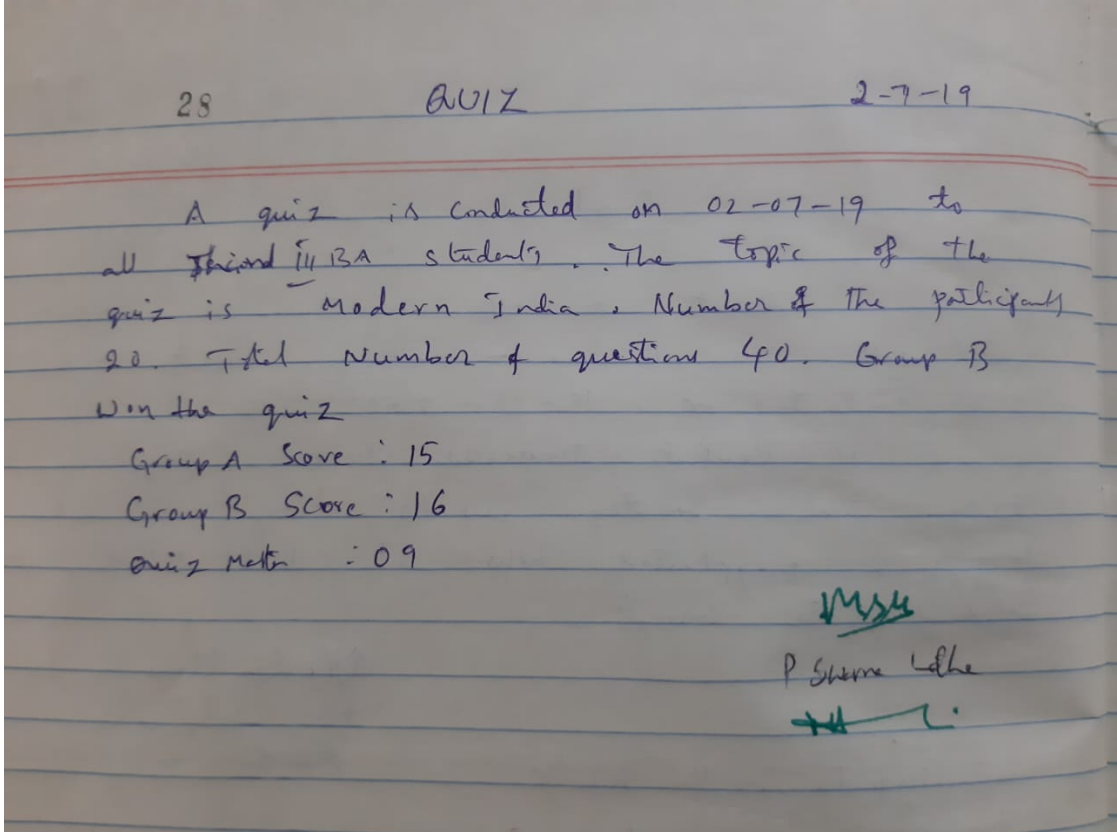 28 QUIZ 2-7-19
A quiz is Conducted on 02-07-19 to
all Third III BA students. The topic of the
quiz is Modern India. Number of the participants
20. Total Number of questions 40. Group B
Won the quiz
Group A Score : 15
Group B Score : 16
Quiz Master : 09
P